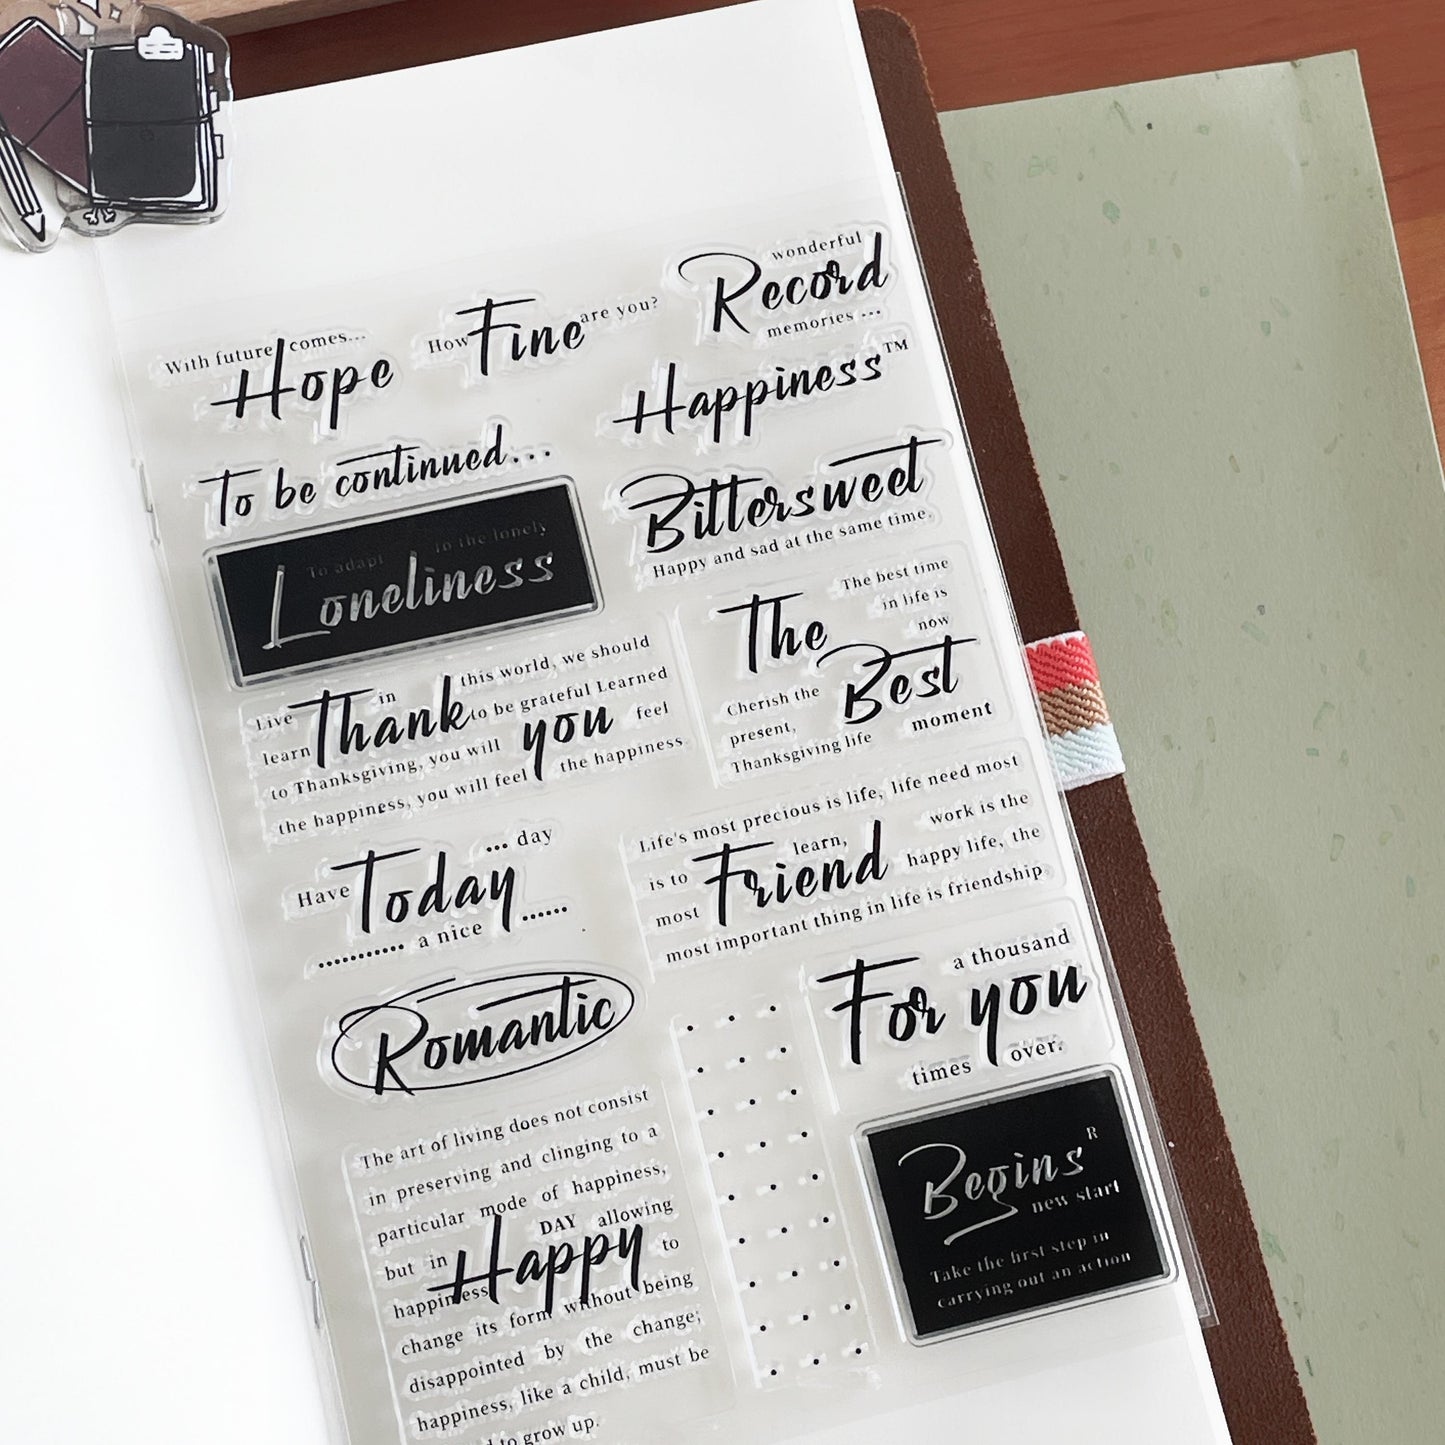 With future comes...
Hope
How Fine are you?
wonderful
Record
memories ...
Happiness™
To be continued...
To adapt to the lonely
Loneliness
Bittersweet
Happy and sad at the same time.
Live in this world, we should
learn Thank to be grateful Learned
you feel
to Thanksgiving, you will
the happiness, you will feel the happiness
The best time
in life is
now
The
Best
Cherish the
present,
moment
Thanksgiving life
... day
Have Today ......
........... a nice
Life's most precious is life, life need most
is to learn, work is the
most Friend happy life, the
most important thing in life is friendship
Romantic
a thousand
For you
times over.
The art of living does not consist
in preserving and clinging to a
particular mode of happiness,
but in DAY allowing
Happy
happiness to
change its form without being
disappointed by the change;
happiness, like a child, must be
to grow up.
Begins R
new start
Take the first step in
carrying out an action